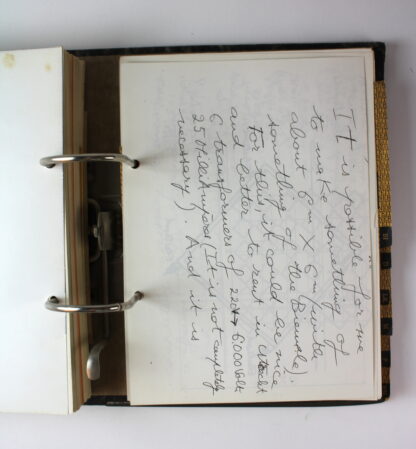 It is possible for me
to make something of
about 6 m X 6 m (with
something of the Biennale).
For this, it could be nice
and better to rent in
6 transformers of 220V → 6000 Volt
250 MilliAmpera (It is not completely
necessary). And it is